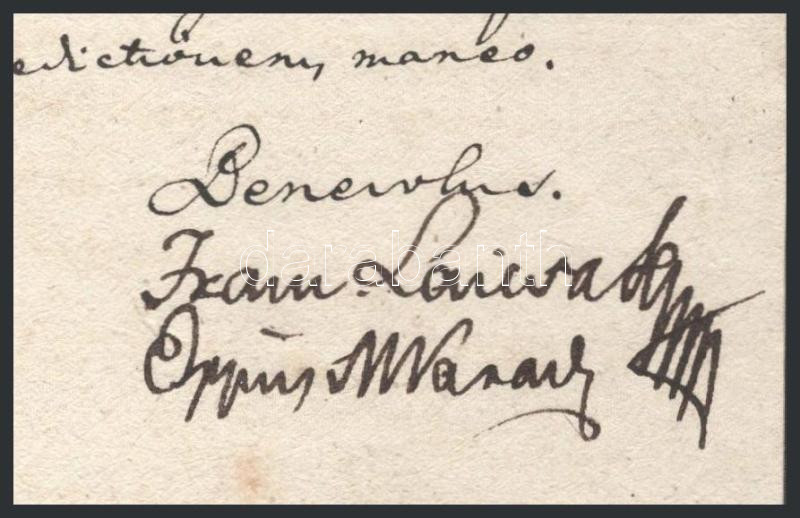 edictionem maneo.
Benevolus.
Franc. Laicsak
Eppus M Varad
darabanth